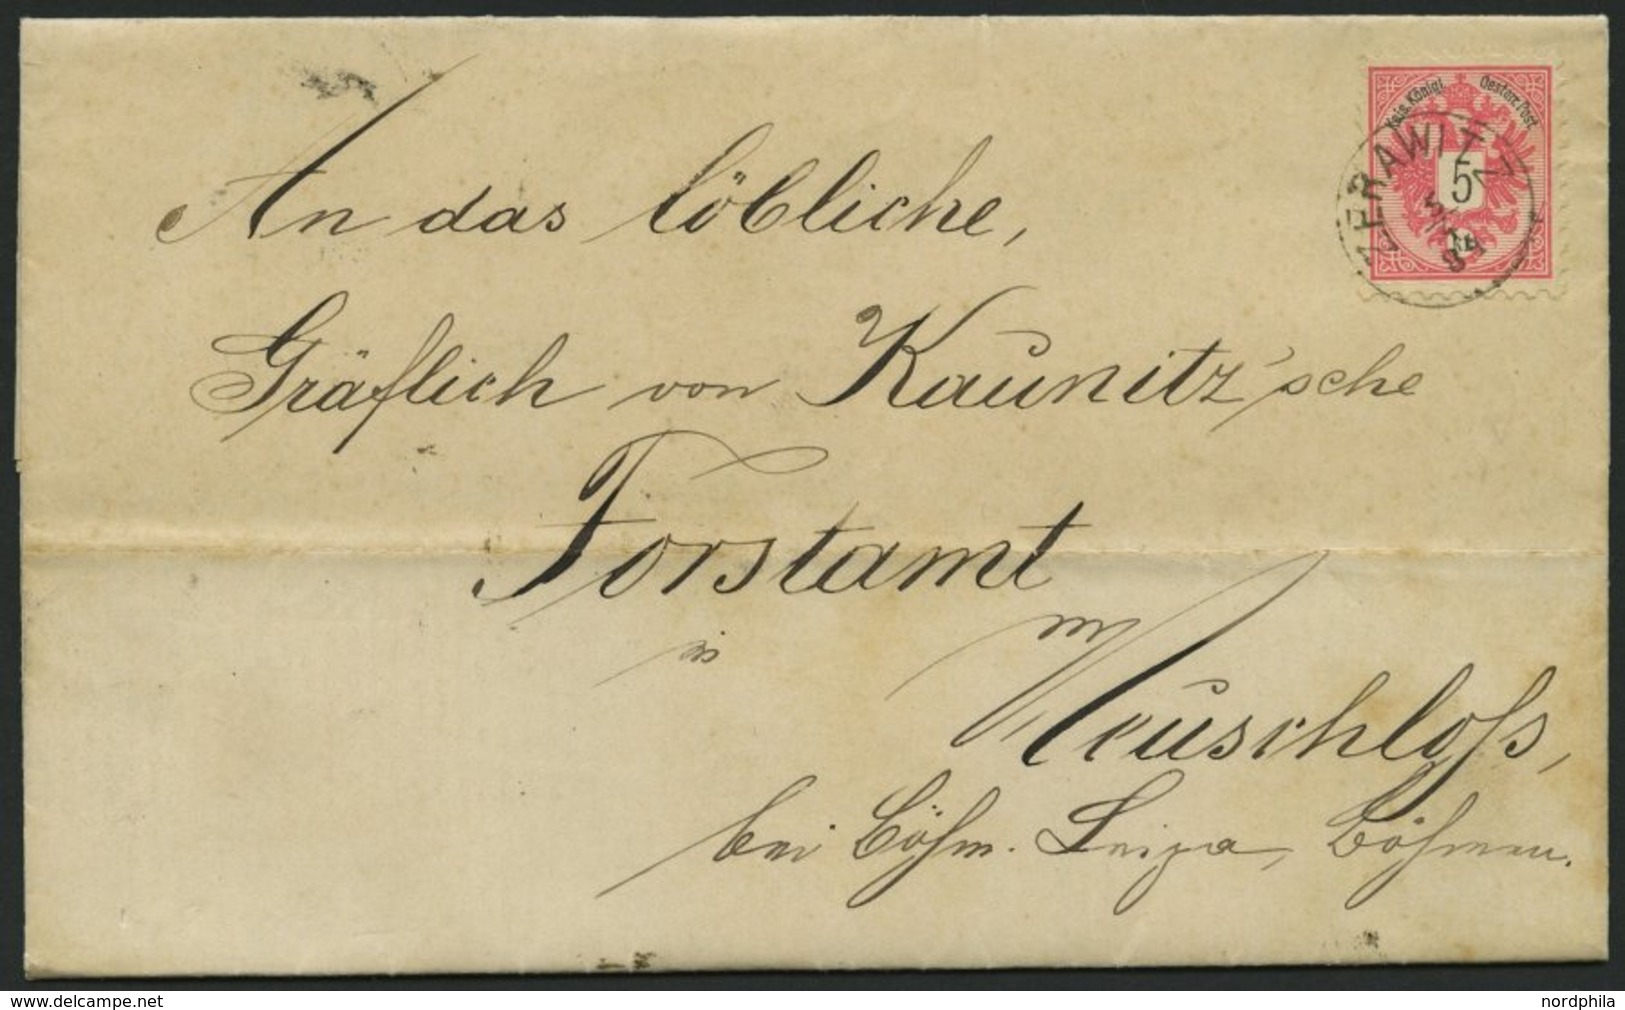 Kais. Königl. Oesterr. Post.
5
kr
ŽERAWITZ
5/11
84
An das löbliche,
Gräflich von Kaunitz'sche
Forstamt
in
Neuschloß,
bei Böhm. Leipa, Böhmen.
www.delcampe.net
nordphila